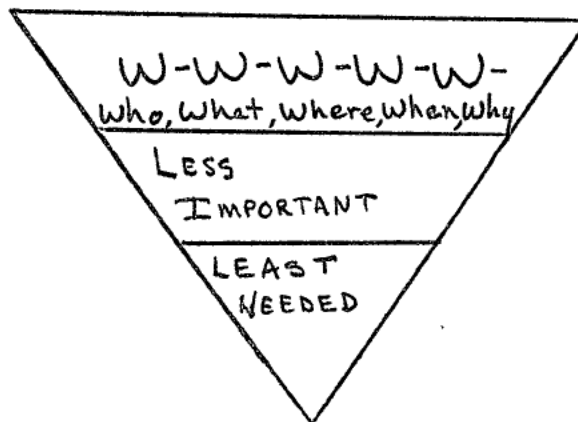 W-W-W-W-W-
Who, What, Where, When, Why
LESS
IMPORTANT
LEAST
NEEDED